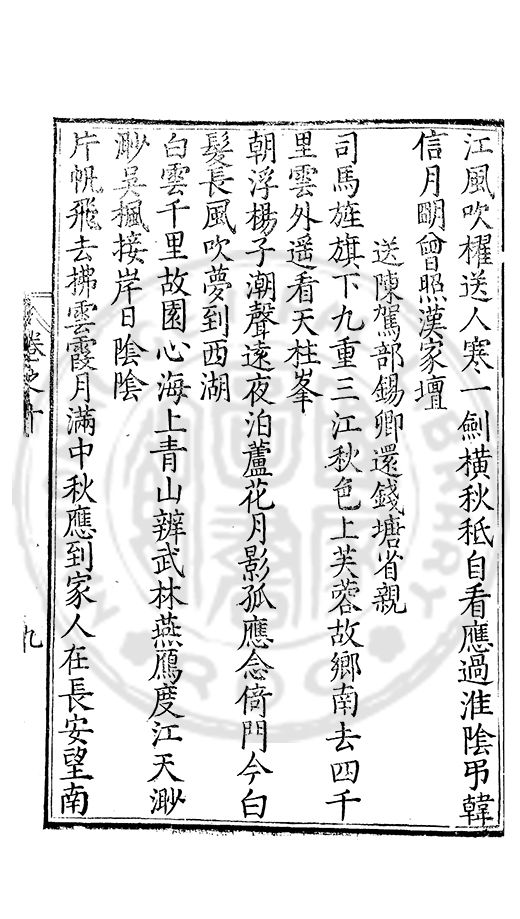 江風吹櫂送人寒一劍横秋秪自看應過淮陰弔韓
信月明曾照漢家壇
送陳駕部錫卿還錢塘省親
司馬旌旗下九重三江秋色上芙蓉故鄉南去四千
里雲外遥看天柱峯
朝浮楊子潮聲遠夜泊蘆花月影孤應念倚門今白
髮長風吹夢到西湖
白雲千里故園心海上青山辨武林燕鴈度江天渺
渺吳楓接岸日陰陰
片帆飛去拂雲霞月滿中秋應到家人在長安望南
卷之十
九